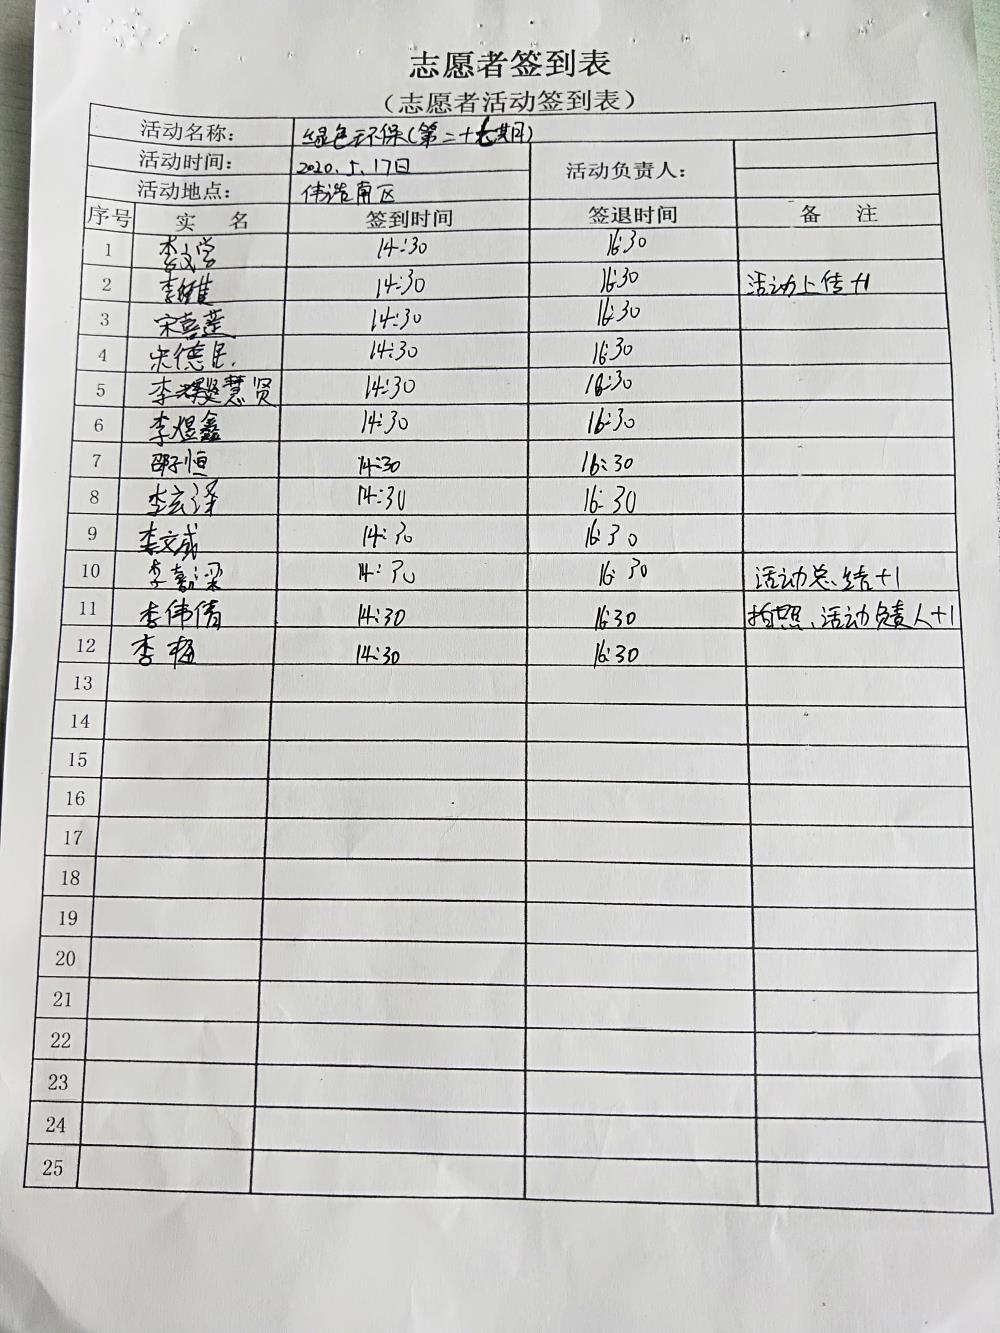 志愿者签到表
（志愿者活动签到表）
活动名称： 绿色环保(第二十七期)
活动时间： 2020.5.17日 活动负责人：
活动地点： 伟浩南区
序号 实 名 签到时间 签退时间 备 注
1 李文学 14:30 16:30
2 李维 14:30 16:30 活动上传+1
3 宋喜莲 14:30 16:30
4 宋德民 14:30 16:30
5 李慧贤 14:30 16:30
6 李煜鑫 14:30 16:30
7 邵子恒 14:30 16:30
8 李玄泽 14:30 16:30
9 李文威 14:30 16:30
10 李嘉梁 14:30 16:30 活动总结+1
11 李伟倩 14:30 16:30 拍照、活动负责人+1
12 李梅 14:30 16:30
13
14
15
16
17
18
19
20
21
22
23
24
25